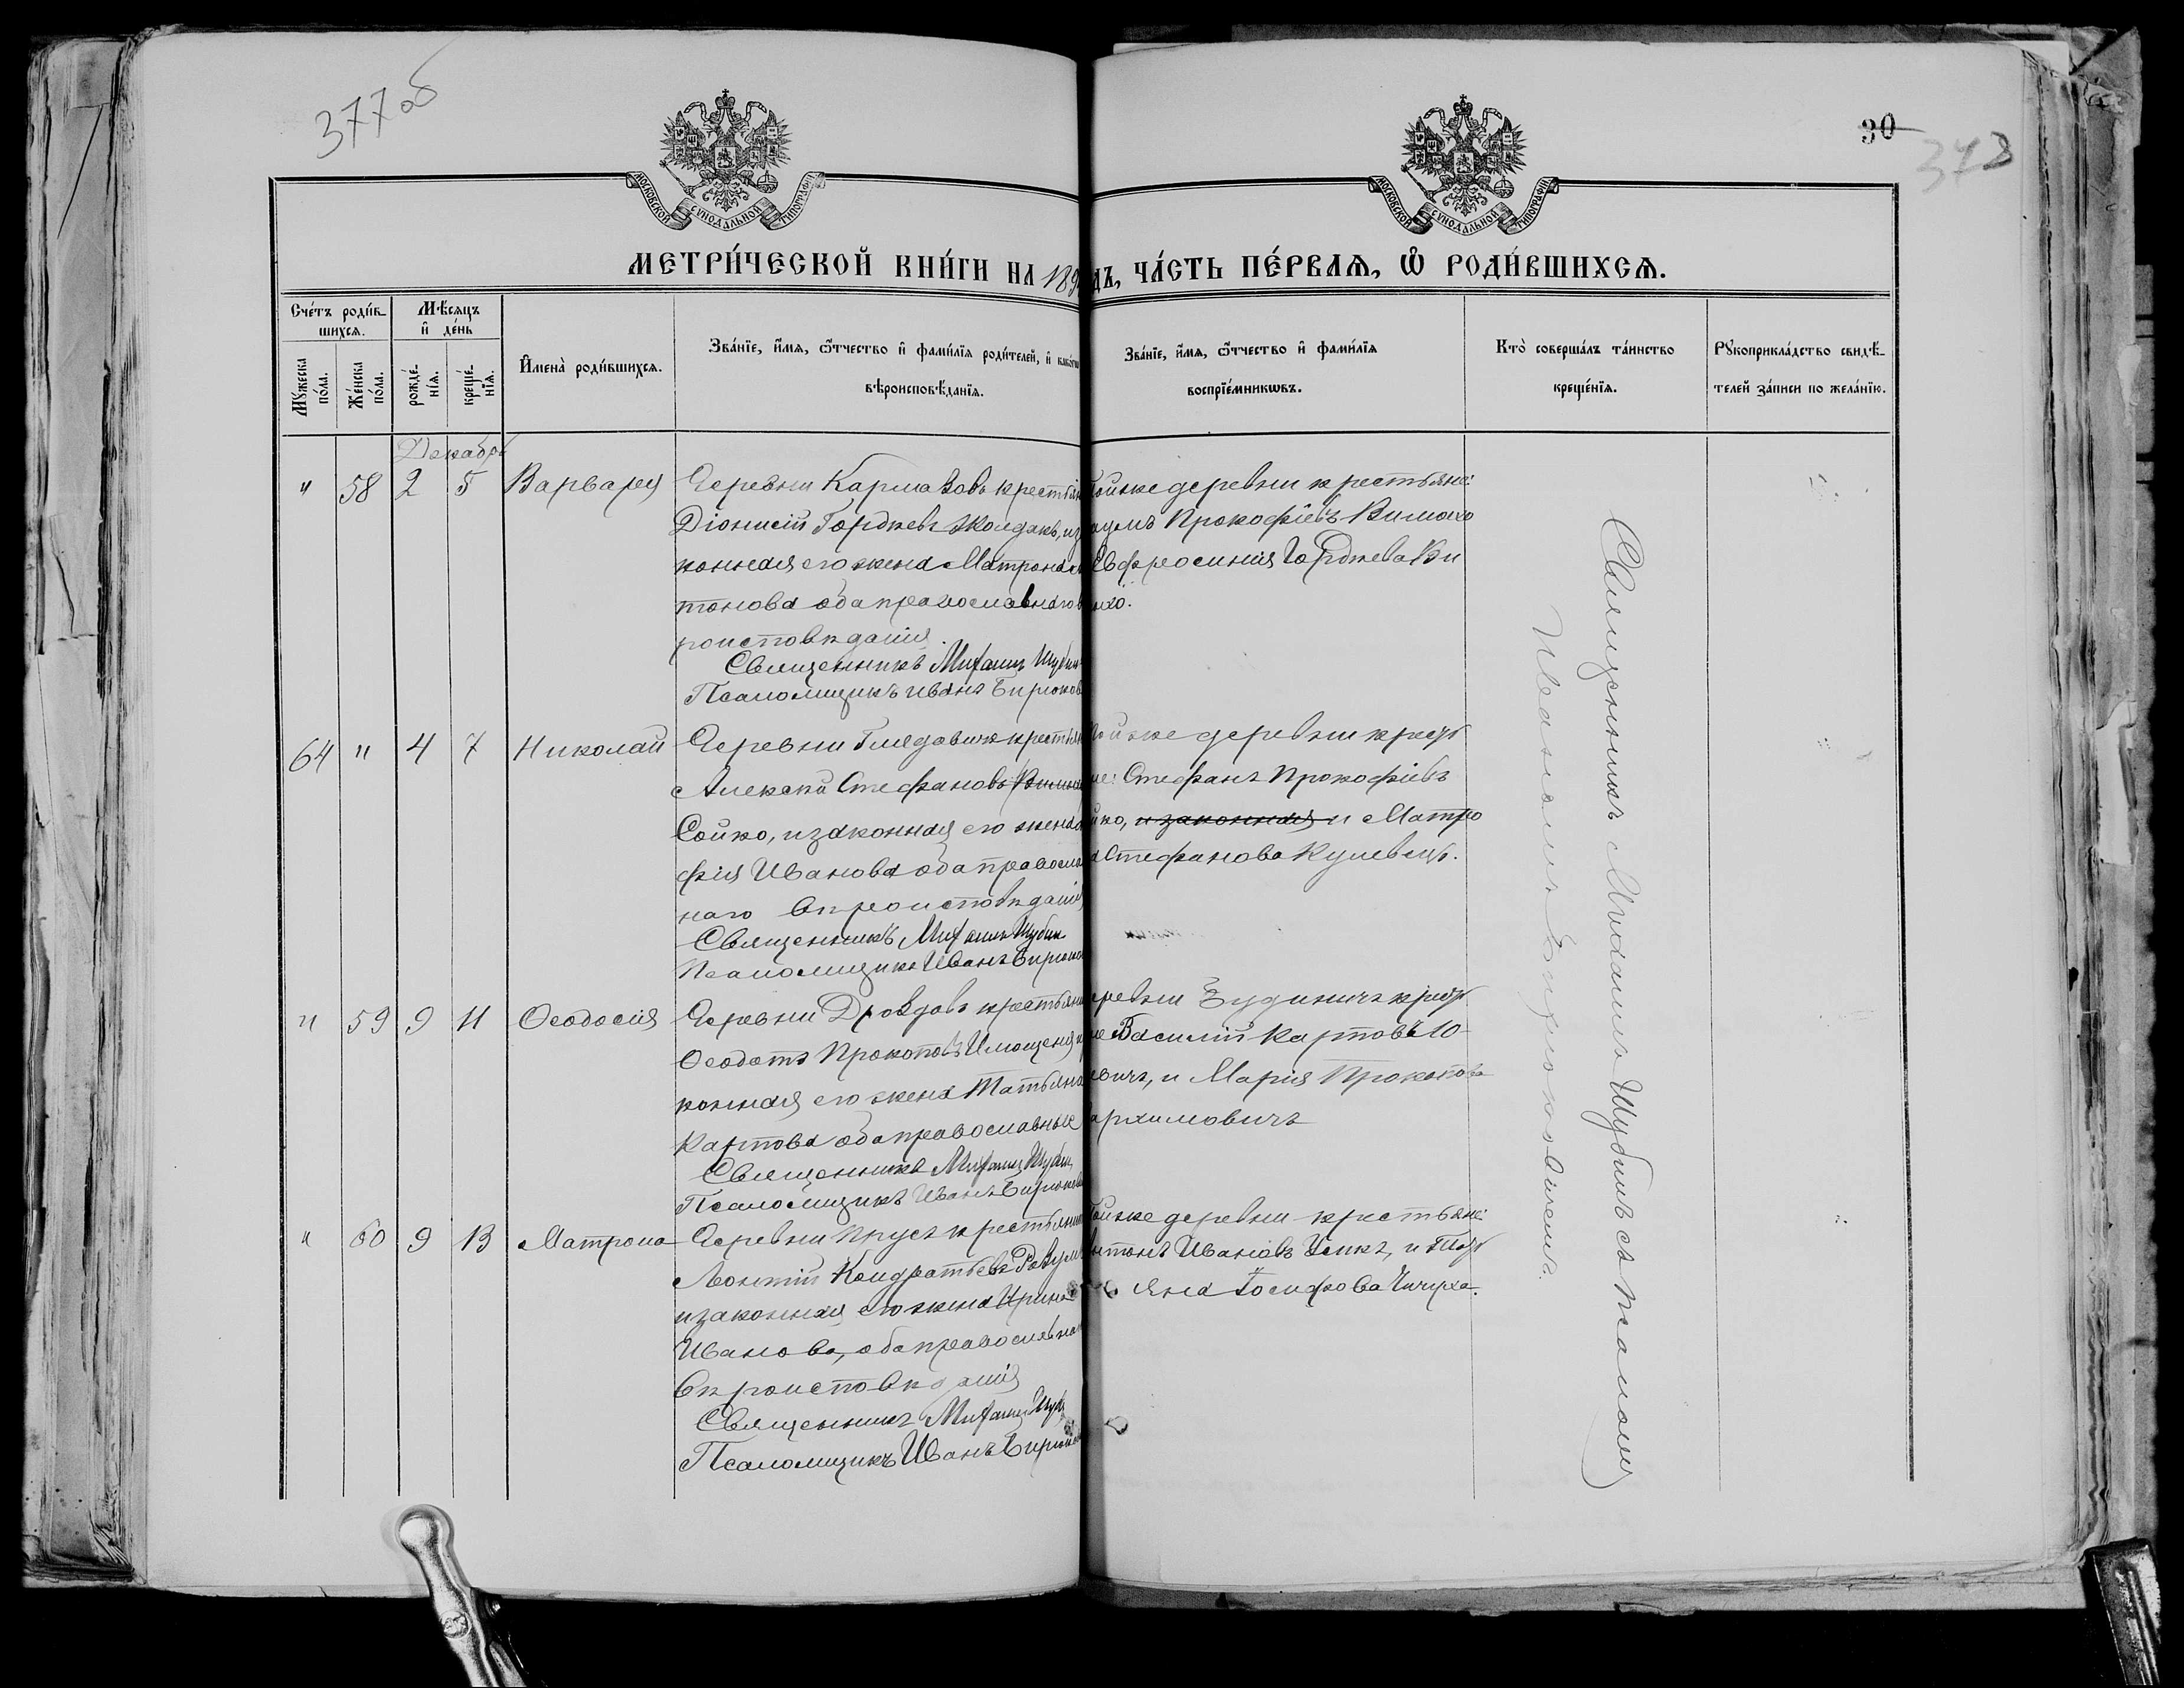 377об
30
378
МОСКОВСКОЙ СѴНОДАЛЬНОЙ ТИПОГРАФІИ
МОСКОВСКОЙ СѴНОДАЛЬНОЙ ТИПОГРАФІИ
МЕТРИ́ЧЕСКОЙ КНИ́ГИ НА 189 ДЪ, ЧА́СТЬ ПЕ́РВАЯ, Ѡ РОДИ́ВШИХСЯ.
Сче́тъ роди́в-
шихся.
Мꙋжеска по́ла.
Же́нска по́ла.
Мѣ́сяцъ
и҆ де́нь
рожде́-нїя.
креще́-нїя.
И҆мена̀ роди́вшихся.
Зва́нїе, и҆́мя, ѻ҆́тчество и҆ фами́лїя роди́телей, и҆
вѣроисповѣ́данїя.
Зва́нїе, и҆́мя, ѻ҆́тчество и҆ фами́лїя
воспрїе́мникѡвъ.
Кто̀ соверша́лъ та́инство
креще́нїя.
Рꙋкоприкла́дство свидѣ́-
телей за́писи по жела́нїю.
Декабрь
" 58 2 5 Варвара
Деревни Кармазовъ крестьян
Діонисій Гордѣевъ Жолдакъ, и з
конная его жена Матрона
тонова оба православнаго в
роисповѣданія.
Священникъ Михаилъ Шубин
Псаломщикъ Иванъ Бирюков
тойже деревни крестьяне:
аумъ Прокофіевъ Вишахо
Евфросинія Гордѣева Ви
ахо.
64 " 4 7 Николай
Деревни Гмедовичъ крестьян
Алексѣй Стефановъ
Сойко, и законная его жена
фія Иванова оба правосла
наго вѣроисповѣданія
Священникъ Михаилъ Шубин
Псаломщикъ Иванъ Бирюко
ойже деревни крест
не: Стефанъ Прокофіевъ
йко, и законная и Матро
а Стефанова Кулевецъ.
" 59 9 11 Ѳеодосія
Деревни Дроздовъ крестьяни
Ѳеодотъ Прокоповъ
конная его жена Татьяна
Карпова оба православные
Священникъ Михаилъ Шубин
Псаломщикъ Иванъ Бирюков
еревни Будиничъ крест
не Василій Карповъ Ю-
евичъ, и Марія Прокопова
архимовичъ
" 60 9 13 Матрона
Деревни Прусъ крестьянин
Леонтій Кондратьевъ
и законная его жена Ирина
Иванова, оба православнаг
вѣроисповѣданія
Священникъ Михаилъ Шуб
Псаломщикъ Иванъ Бирюков
тойже деревни крестьяне:
нтонъ Ивановъ Усикъ, и Тат
яна Іосифова Чичуха.
Священникъ Михаилъ Шубинъ съ псалом
Иваномъ Бирюковичемъ.